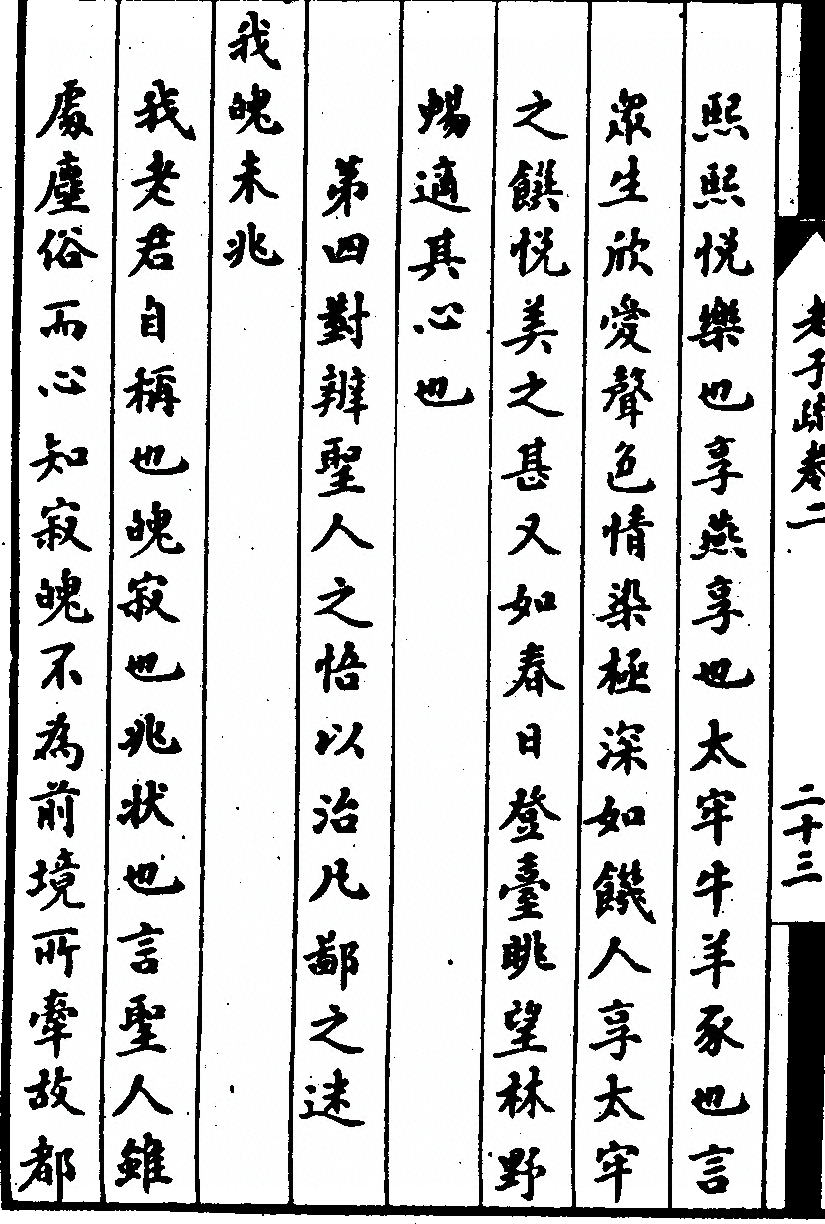 老子疏卷二
二十三
熙熙悦樂也享燕享也太牢牛羊豕也言
衆生欣愛聲色情染極深如饑人享太牢
之饌悦美之甚又如春日登臺眺望林野
暢適其心也
第四對辨聖人之悟以治凡鄙之迷
我魄未兆
我老君自稱也魄寂也兆状也言聖人雖
處塵俗而心知寂魄不為前境所牽故都